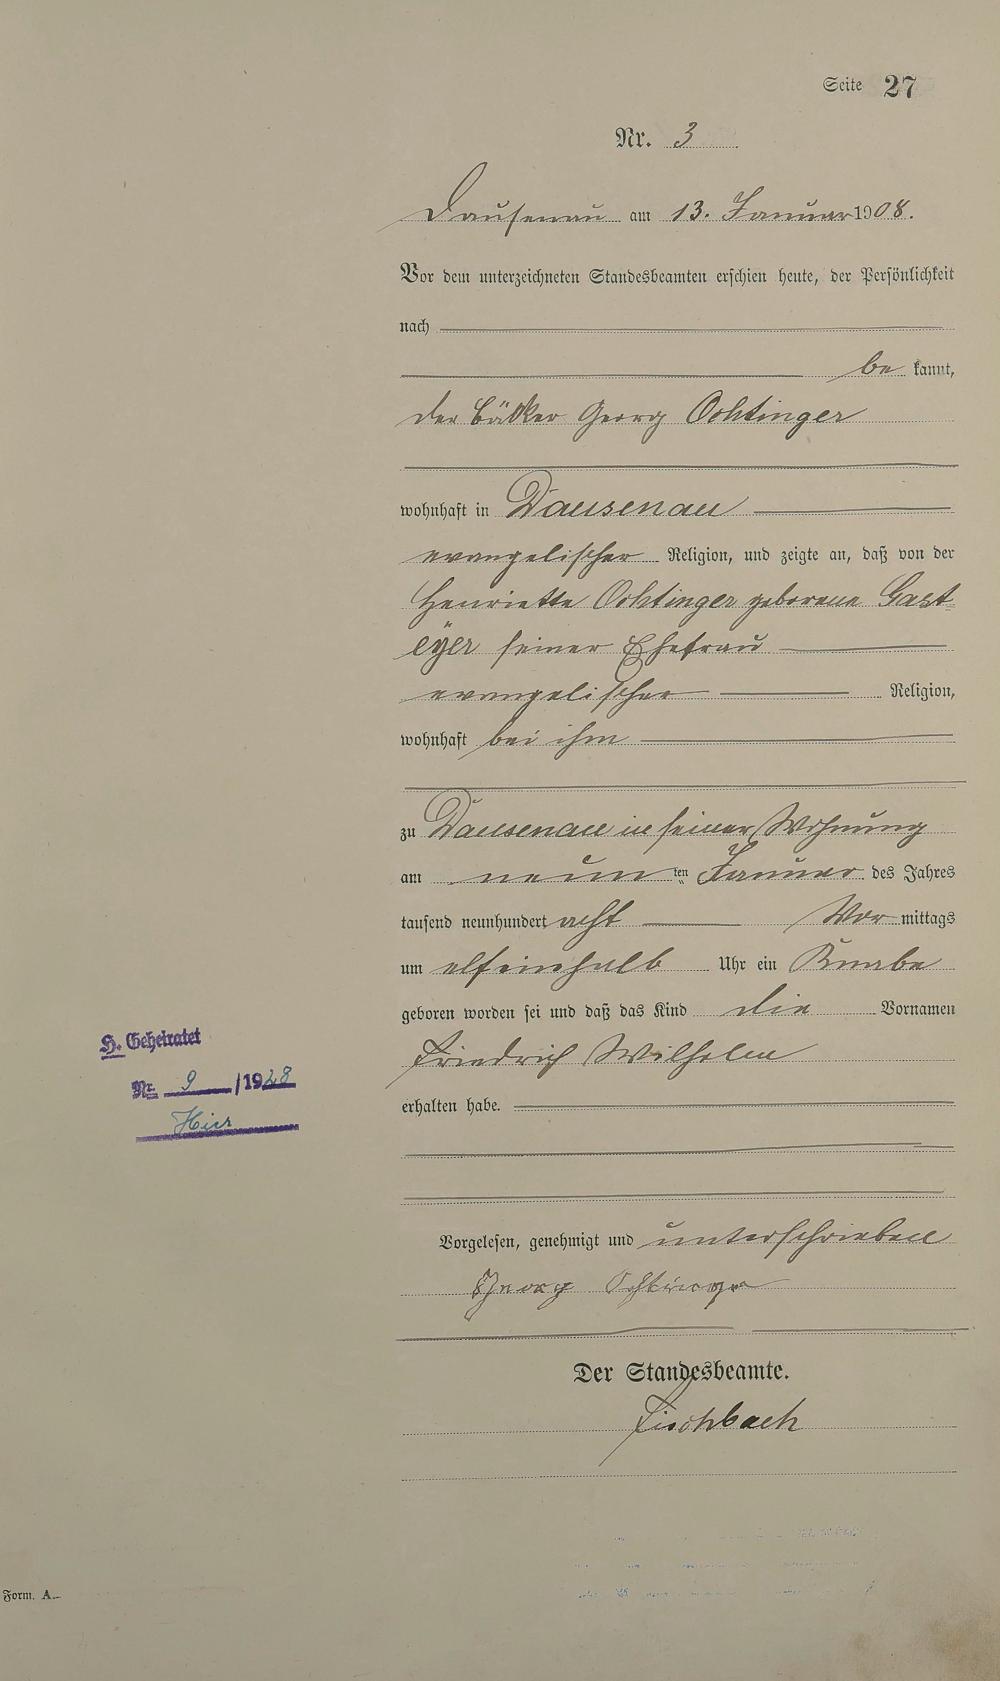 Seite 27
Nr. 3
Dausenau am 13. Januar 1908.
Vor dem unterzeichneten Standesbeamten erschien heute, der Persönlichkeit
nach
be kannt,
der Bäcker Georg Ochtinger
wohnhaft in Dausenau
evangelischer Religion, und zeigte an, daß von der
Henriette Ochtinger geborene Gast-
eyer seiner Ehefrau
evangelischer Religion,
wohnhaft bei ihm
zu Dausenau in seiner Wohnung
am neun ten Januar des Jahres
tausend neunhundert acht Vor mittags
um elfeinhalb Uhr ein Knabe
geboren worden sei und daß das Kind die Vornamen
Friedrich Wilhelm
erhalten habe.
H. Geheiratet
Nr. 9 /1928
Hier
Vorgelesen, genehmigt und unterschrieben
Georg Ochtinger
Der Standesbeamte.
Fischbach
Form. A.